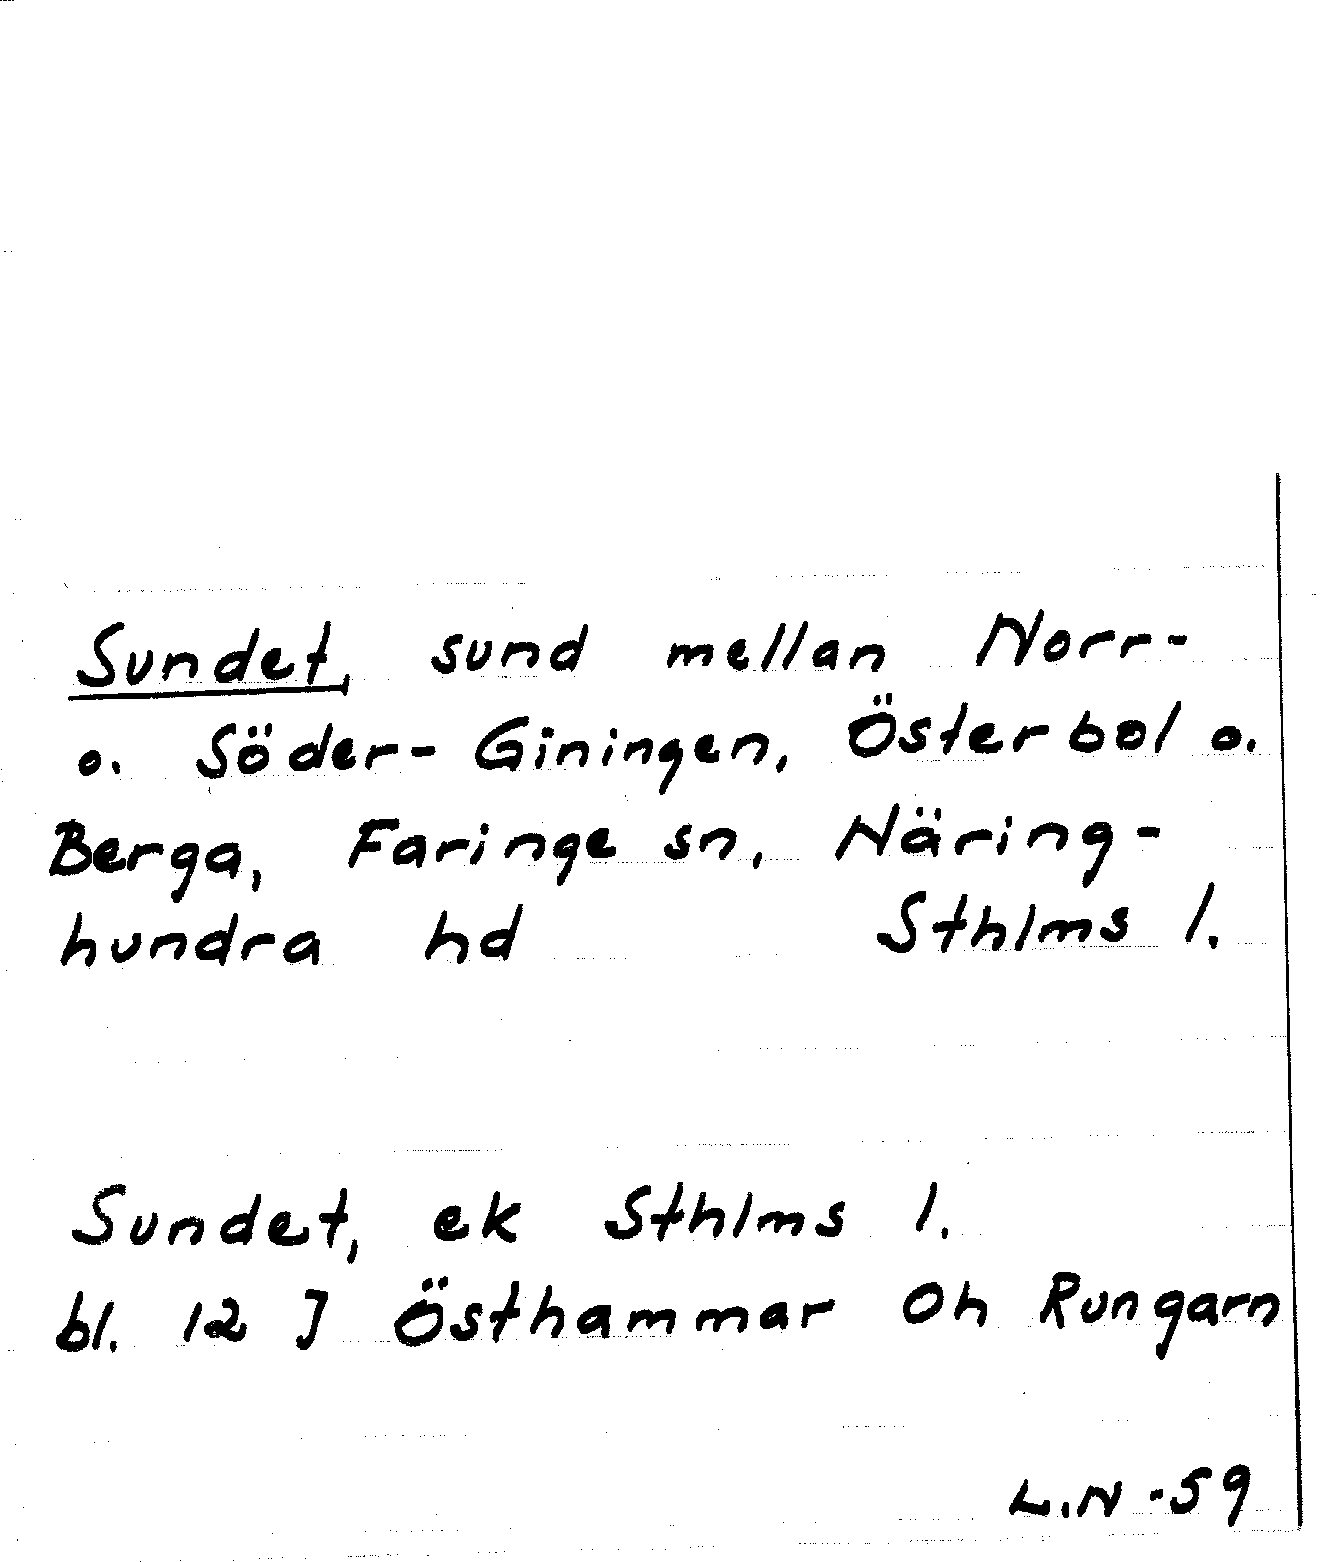 Sundet, sund mellan Norr-
o. Söder- Giningen, Österbol o.
Berga, Faringe sn, Näring-
hundra hd Sthlms l.
Sundet, ek Sthlms l.
bl. 12 J Östhammar Oh Rungarn
L.N -59